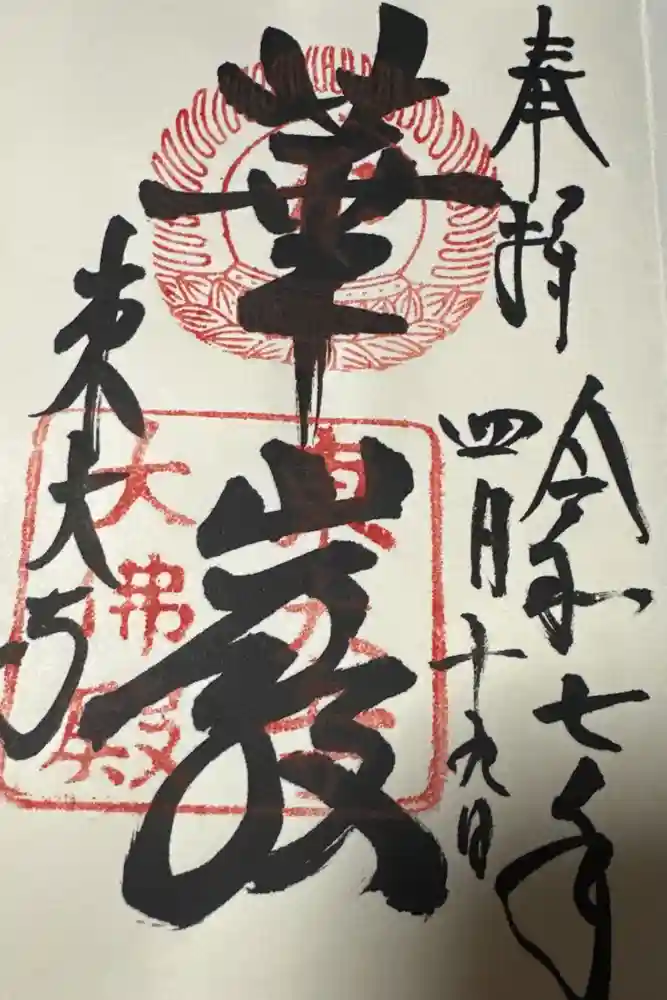 奉拝
令和七年
四月十九日
華厳
東大寺
東大寺
大佛殿